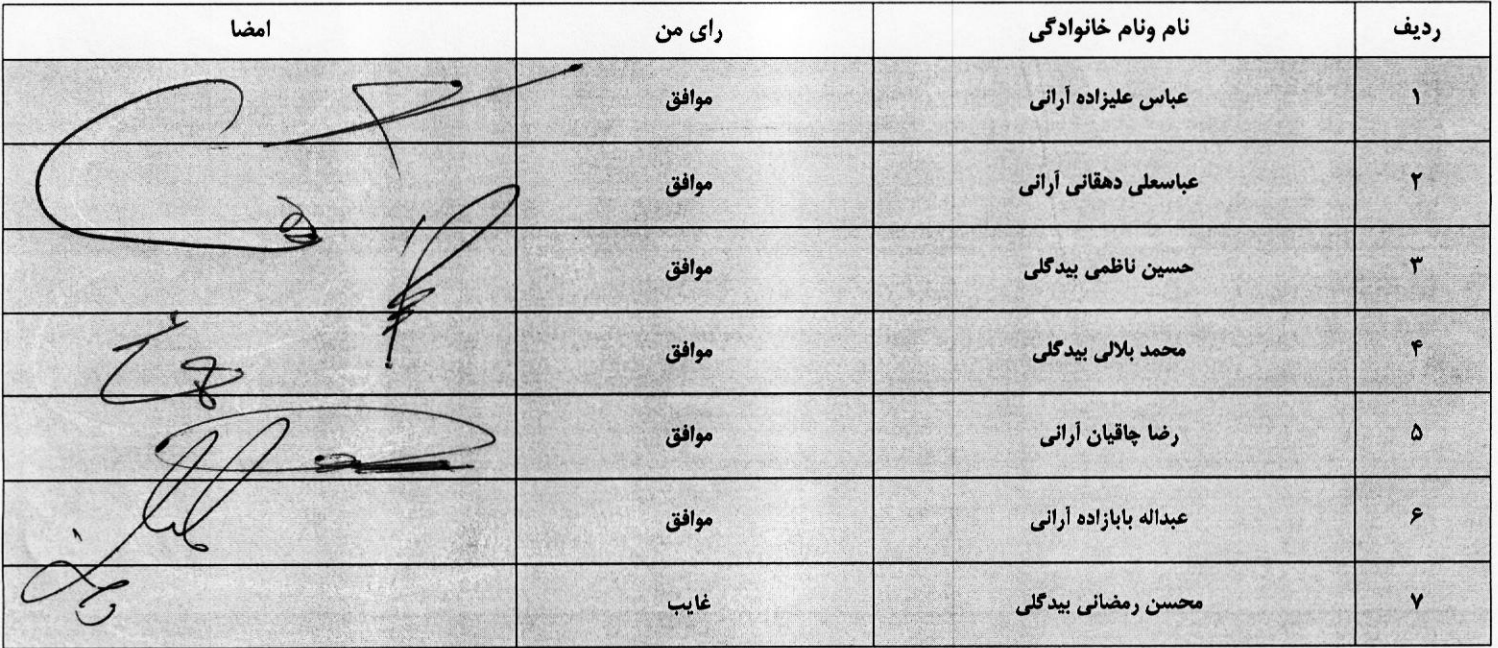 ردیف نام ونام خانوادگی رای من امضا
۱ عباس علیزاده آرانی موافق
۲ عباسعلی دهقانی آرانی موافق
۳ حسین ناظمی بیدگلی موافق
۴ محمد بلالی بیدگلی موافق
۵ رضا چاقیان آرانی موافق
۶ عبداله بابازاده آرانی موافق
۷ محسن رمضانی بیدگلی غایب